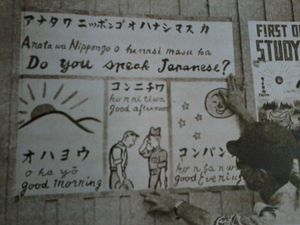 アナタワ ニッポンゴ オ ハナシマス カ
Anata wa Nippongo o hanasi masu ka
Do you speak Japanese?
オハヨウ
o ha yō
good morning
コンニチワ
ko n ni ti wa
good afternoon
コンバン
ko n ba n wa
good Evening
FIRST
STUDY